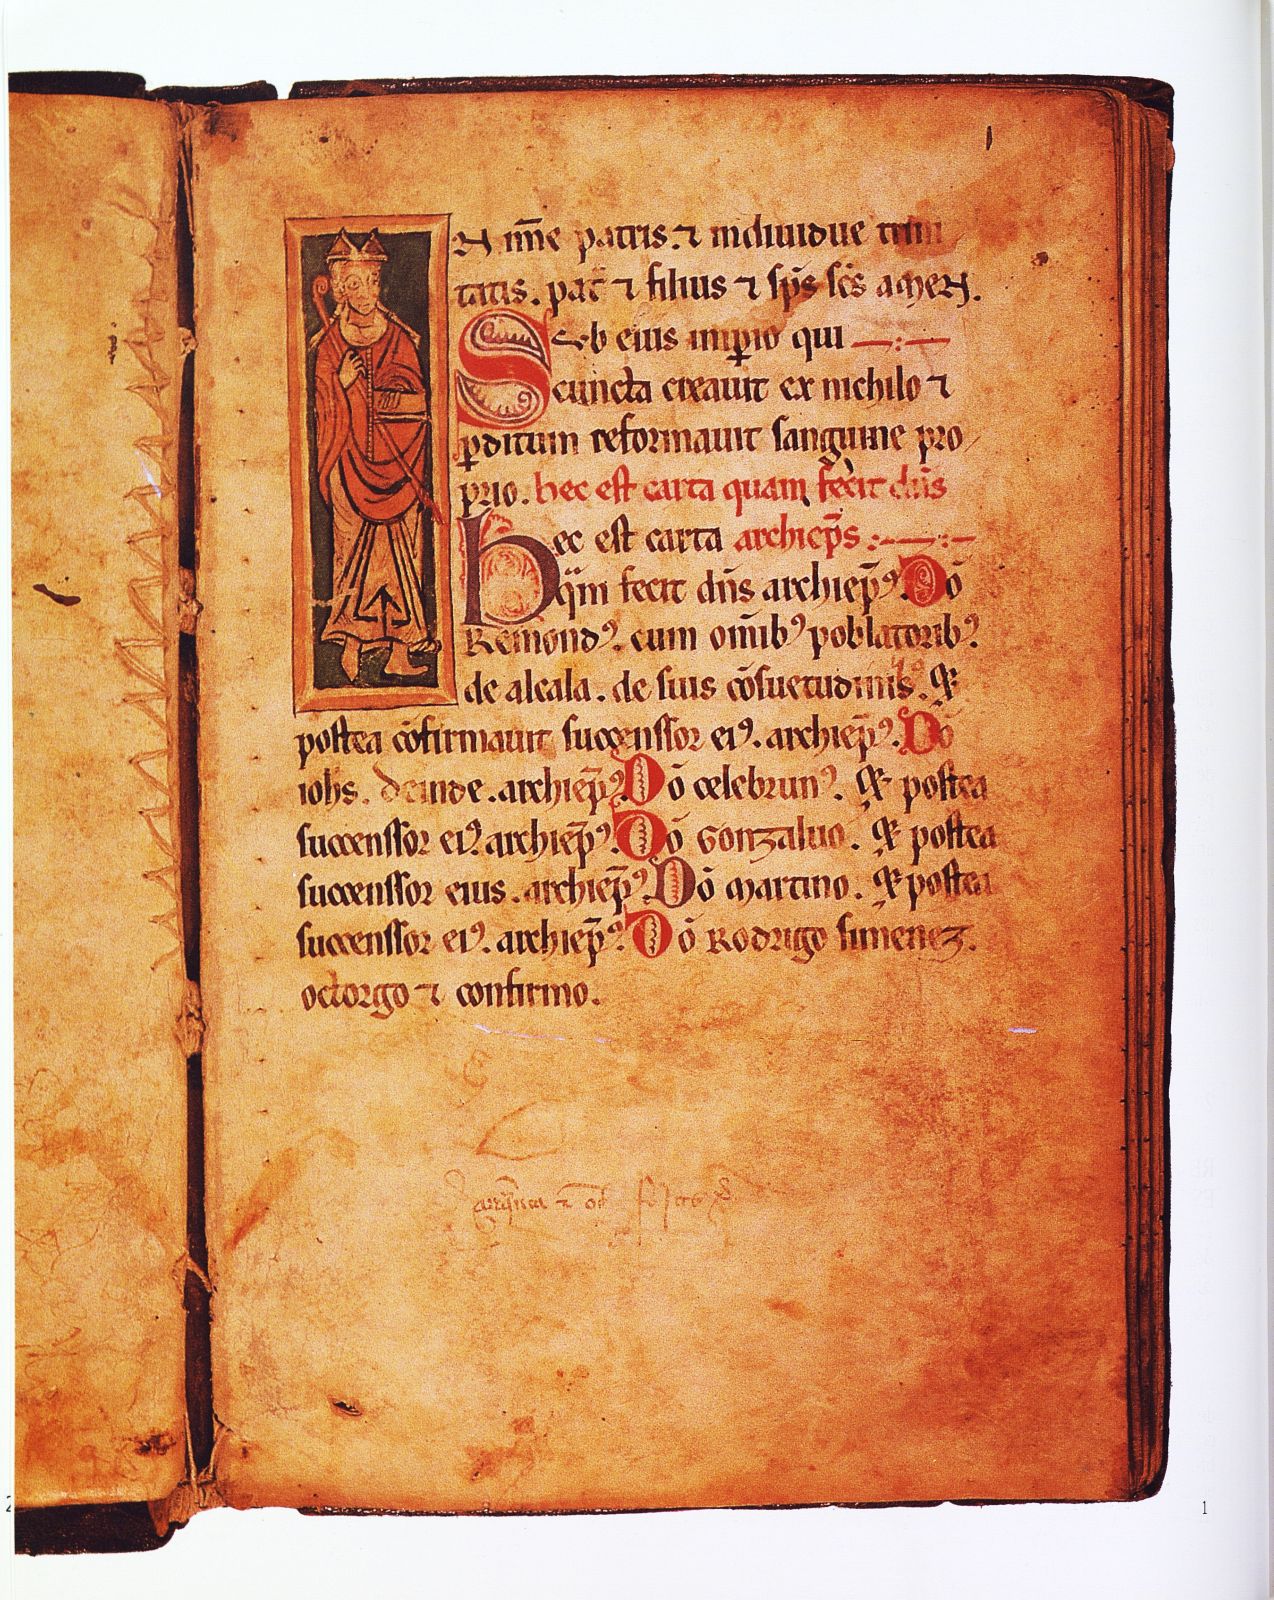 N nn̄e patris. ⁊ indiuidue trini
tatis. pat̄ ⁊ filius ⁊ sp̄s sc̄s amen.
Sub eius imꝑio qui
cuncta creauit ex nichilo ⁊
ꝑditum reformauit sanguine pro
prio. hec est carta quam fecit dn̄s
Hec est carta archiep̄s
qm̄ fecit dn̄s archiep̄ꝰ. Dō
Remondꝰ. cum om̄ibꝰ poblatoribꝰ.
de alcala. de suis cōsuetudinis. Et
postea cōfirmauit successor eiꝰ. archiep̄ꝰ. Dō
iohs. deinde. archiep̄ꝰ Dō celebrunꝰ. Et postea
successor eiꝰ. archiep̄ꝰ. Dō Gonzaluo. Et postea
successor eius. archiep̄ꝰ. Dō martino. Et postea
successor eiꝰ. archiep̄ꝰ Dō Rodrigo simenez.
octorgo ⁊ confirmo.
1